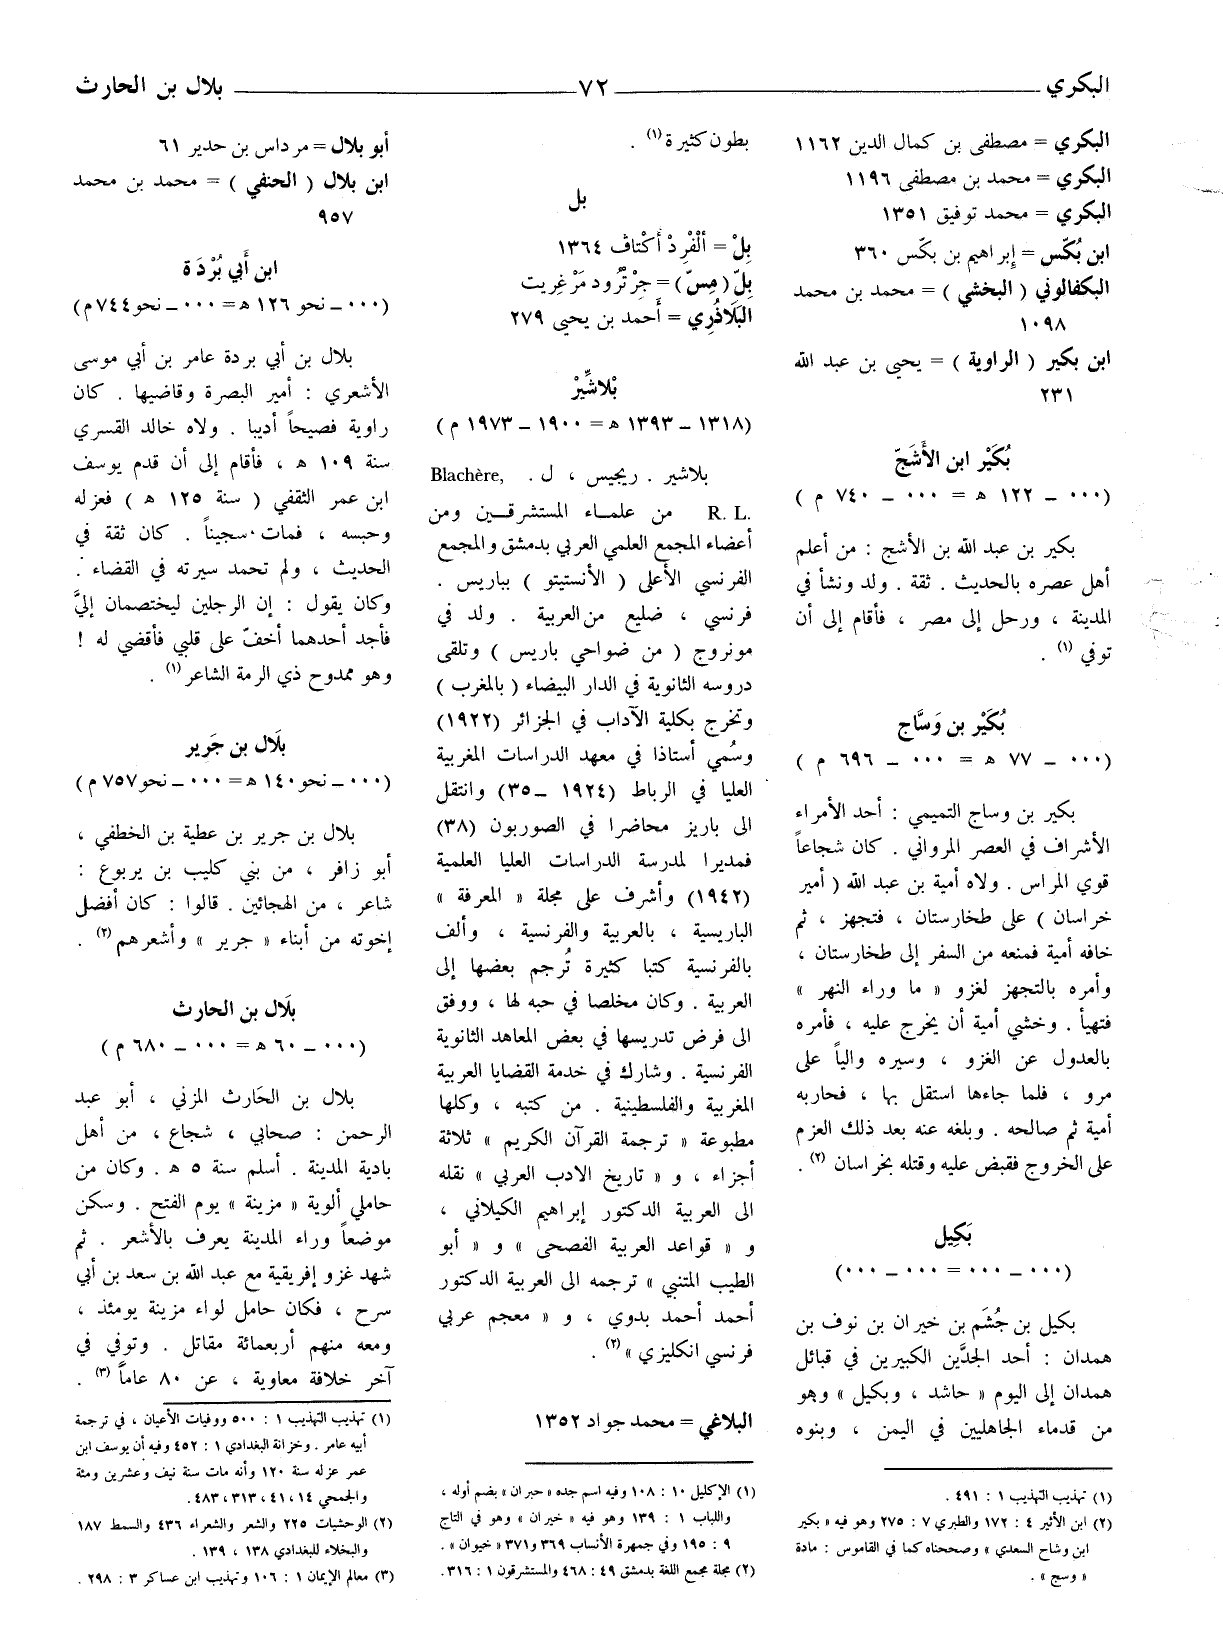 البكري ٧٢ بلال بن الحارث
البكري = مصطفى بن كمال الدين ١١٦٢
البكري = محمد بن مصطفى ١١٩٦
البكري = محمد توفيق ١٣٥١
ابن بُكّس = إبراهيم بن بكّس ٣٦٠
البكفالوني ( البخشي ) = محمد بن محمد
١٠٩٨
ابن بكير ( الراوية ) = يحيى بن عبد الله
٢٣١
بُكَيْر ابن الأَشَجّ
(٠٠٠ ــ ١٢٢ هـ = ٠٠٠ ــ ٧٤٠ م )
بكير بن عبد الله بن الأشج : من أعلم
أهل عصره بالحديث . ثقة . ولد ونشأ في
المدينة ، ورحل إلى مصر ، فأقام إلى أن
توفي (١) .
بُكَيْر بن وَسَّاج
(٠٠٠ ــ ٧٧ هـ = ٠٠٠ ــ ٦٩٦ م )
بكير بن وساج التميمي : أحد الأمراء
الأشراف في العصر المرواني . كان شجاعاً
قوي المراس . ولاه أمية بن عبد الله ( أمير
خراسان ) على طخارستان ، فتجهز ، ثم
خافه أمية فمنعه من السفر إلى طخارستان ،
وأمره بالتجهز لغزو « ما وراء النهر »
فتهيأ . وخشي أمية أن يخرج عليه ، فأمره
بالعدول عن الغزو ، وسيره والياً على
مرو ، فلما جاءها استقل بها ، فحاربه
أمية ثم صالحه . وبلغه عنه بعد ذلك العزم
على الخروج فقبض عليه وقتله بخراسان (٢) .
بَكِيل
(٠٠٠ ــ ٠٠٠ = ٠٠٠ ــ ٠٠٠)
بكيل بن جُشَم بن خيران بن نوف بن
همدان : أحد الجدَّين الكبيرين في قبائل
همدان إلى اليوم « حاشد ، وبكيل » وهو
من قدماء الجاهليين في اليمن ، وبنوه
(١) تهذيب التهذيب ١ : ٤٩١ .
(٢) ابن الأثير ٤ : ١٧٢ والطبري ٧ : ٢٧٥ وهو فيه « بكير
ابن وشاح السعدي » وصححناه كما في القاموس : مادة
« وسج » .
بطون كثيرة (١) .
بل
بِلْ = ألْفِرِدْ أُكْتاف ١٣٦٤
بِلّ ( مِسّ ) = جِرْتْرُود مَرْغِريت
البَلَاذُرِي = أحمد بن يحيى ٢٧٩
بْلاشِّيرْ
(١٣١٨ ــ ١٣٩٣ هـ = ١٩٠٠ ــ ١٩٧٣ م )
بلاشير . ريجيس ، ل . Blachère,
R. L. من علماء المستشرقين ومن
أعضاء المجمع العلمي العربي بدمشق والمجمع
الفرنسي الأعلى ( الأنستيتو ) بباريس .
فرنسي ، ضليع من العربية . ولد في
مونروج ( من ضواحي باريس ) وتلقى
دروسه الثانوية في الدار البيضاء ( بالمغرب )
وتخرج بكلية الآداب في الجزائر (١٩٢٢)
وسُمي أستاذا في معهد الدراسات المغربية
العليا في الرباط (١٩٢٤ ــ٣٥) وانتقل
الى باريز محاضرا في الصوربون (٣٨)
فمديرا لمدرسة الدراسات العليا العلمية
(١٩٤٢) وأشرف على مجلة « المعرفة »
الباريسية ، بالعربية والفرنسية ، وألف
بالفرنسية كتبا كثيرة تُرجم بعضها إلى
العربية . وكان مخلصا في حبه لها ، ووفق
الى فرض تدريسها في بعض المعاهد الثانوية
الفرنسية . وشارك في خدمة القضايا العربية
المغربية والفلسطينية . من كتبه ، وكلها
مطبوعة « ترجمة القرآن الكريم » ثلاثة
أجزاء ، و « تاريخ الادب العربي » نقله
الى العربية الدكتور إبراهيم الكيلاني ،
و « قواعد العربية الفصحى » و « أبو
الطيب المتنبي » ترجمه الى العربية الدكتور
أحمد أحمد بدوي ، و « معجم عربي
فرنسي انكليزي » (٢) .
البلاغي = محمد جواد ١٣٥٢
(١) الإكليل ١٠ : ١٠٨ وفيه اسم جده « حبران » بضم أوله ،
واللباب ١ : ١٣٩ وهو فيه « خيران » وهو في التاج
٩ : ١٩٥ وفي جمهرة الأنساب ٣٦٩ و٣٧١ « خيوان » .
(٢) مجلة مجمع اللغة بدمشق ٤٩ : ٤٦٨ والمستشرقون ١ : ٣١٦ .
أبو بلال = مرداس بن حدير ٦١
ابن بلال ( الحنفي ) = محمد بن محمد
٩٥٧
ابن أَبي بُرْدَة
(٠٠٠ ــ نحو ١٢٦ هـ = ٠٠٠ ــ نحو ٧٤٤ م)
بلال بن أبي بردة عامر بن أبي موسى
الأشعري : أمير البصرة وقاضيها . كان
راوية فصيحاً أديبا . ولاه خالد القسري
سنة ١٠٩ هـ ، فأقام إلى أن قدم يوسف
ابن عمر الثقفي ( سنة ١٢٥ هـ ) فعزله
وحبسه ، فمات سجيناً . كان ثقة في
الحديث ، ولم تحمد سيرته في القضاء .
وكان يقول : إن الرجلين ليختصمان إليَّ
فأجد أحدهما أخفّ على قلبي فأقضي له !
وهو ممدوح ذي الرمة الشاعر (١) .
بلَال بن جَرير
(٠٠٠ ــ نحو ١٤٠ هـ = ٠٠٠ ــ نحو ٧٥٧ م )
بلال بن جرير بن عطية بن الخطفي ،
أبو زافر ، من بني كليب بن يربوع :
شاعر ، من الهجائين . قالوا : كان أفضل
إخوته من أبناء « جرير » وأشعرهم (٢) .
بلَال بن الحارث
(٠٠٠ ــ ٦٠ هـ = ٠٠٠ ــ ٦٨٠ م )
بلال بن الحَارث المزني ، أبو عبد
الرحمن : صحابي ، شجاع ، من أهل
بادية المدينة . أسلم سنة ٥ هـ . وكان من
حاملي ألوية « مزينة » يوم الفتح . وسكن
موضعاً وراء المدينة يعرف بالأشعر . ثم
شهد غزو إفريقية مع عبد الله بن سعد بن أبي
سرح ، فكان حامل لواء مزينة يومئذ ،
ومعه منهم أربعمائة مقاتل . وتوفي في
آخر خلافة معاوية ، عن ٨٠ عاماً (٣) .
(١) تهذيب التهذيب ١ : ٥٠٠ ووفيات الأعيان ، في ترجمة
أبيه عامر . وخزانة البغدادي ١ : ٤٥٢ وفيه أن يوسف ابن
عمر عزله سنة ١٢٠ وأنه مات سنة نيف وعشرين ومئة
والجمحي ١٤ ، ٤١ ، ٣١٣ ، ٤٨٣ .
(٢) الوحشيات ٢٢٥ والشعر والشعراء ٤٣٦ والسمط ١٨٧
والبخلاء للبغدادي ١٣٨ ، ١٣٩ .
(٣) معالم الإيمان ١ : ١٠٦ وتهذيب ابن عساكر ٣ : ٢٩٨ .